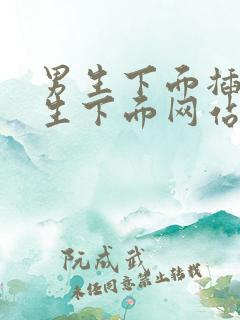 男生下面插
生下面网站
阮成武
未经同意禁止转载